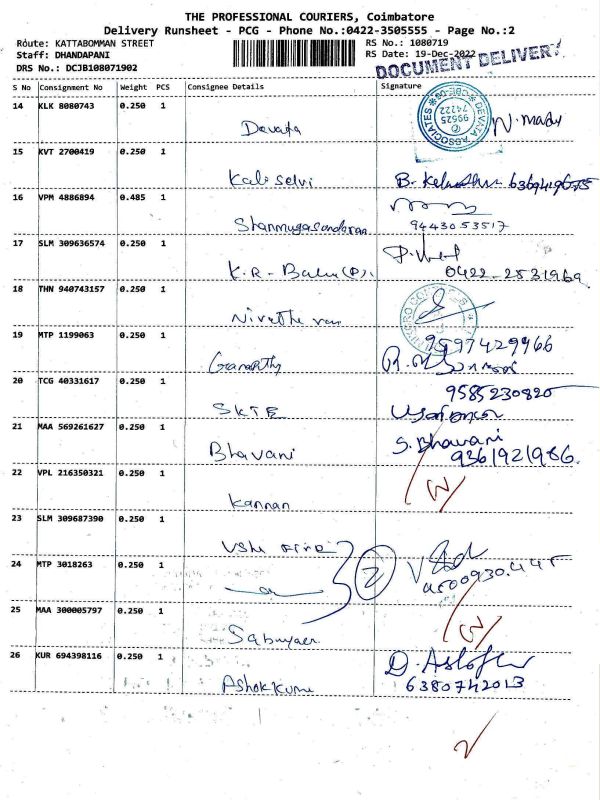 THE PROFESSIONAL COURIERS, Coimbatore
Delivery Runsheet - PCG - Phone No.:0422-3505555 - Page No.:2
Route: KATTABOMMAN STREET
Staff: DHANDAPANI
DRS No.: DCJB108071902
RS No.: 1080719
RS Date: 19-Dec-2022
DOCUMENT DELIVERY
S No Consignment No Weight PCS Consignee Details Signature
14 KLK 8080743 0.250 1
Devata
DEVATA ASSOCIATES
99625
74222
CBE-09
N. Mady
15 KVT 2700419 0.250 1
Kali Selvi
B.
16 VPM 4886894 0.485 1
Shanmugasundaram
9443053517
17 SLM 309636574 0.250 1
K.R. Balu(P).
0422-2531969
18 THN 940743157 0.250 1
19 MTP 1199063 0.250 1
9597429966
Ganapathy
20 TCG 40331617 0.250 1
9585230820
SKTE
21 MAA 569261627 0.250 1
Bhavani
S. Bhavani
9361921986.
22 VPL 216350321 0.250 1
Kannan
23 SLM 309687390 0.250 1
2
24 MTP 3018263 0.250 1
25 MAA 300005797 0.250 1
26 KUR 694398116 0.250 1
6380742013